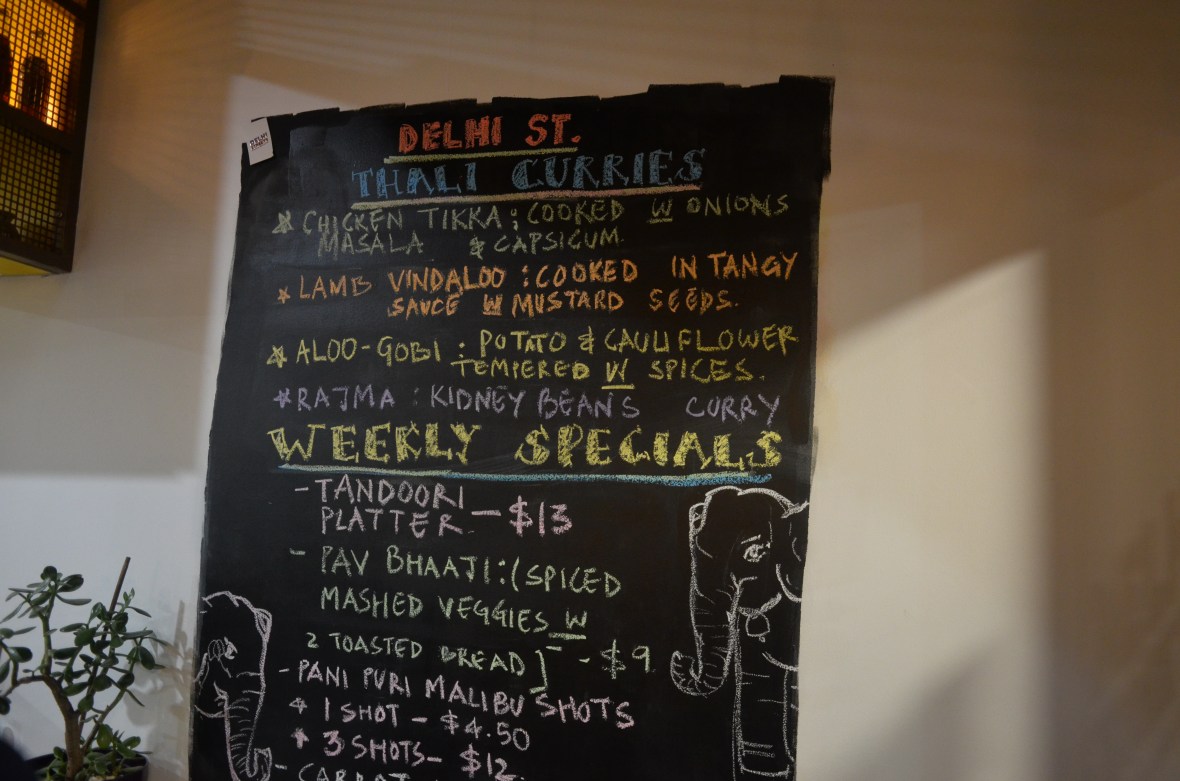 DELHI ST.
THALI CURRIES
CHICKEN TIKKA : COOKED W ONIONS
MASALA & CAPSICUM
LAMB VINDALOO : COOKED IN TANGY
SAUCE W MUSTARD SEEDS.
ALOO-GOBI : POTATO & CAULIFLOWER
TEMPERED W SPICES.
RAJMA : KIDNEY BEANS CURRY
WEEKLY SPECIALS
- TANDOORI
PLATTER - $13
- PAV BHAAJI : (SPICED
MASHED VEGGIES W
2 TOASTED BREAD) - $9
- PANI PURI MALIBU SHOTS
1 SHOT - $4.50
3 SHOTS - $12